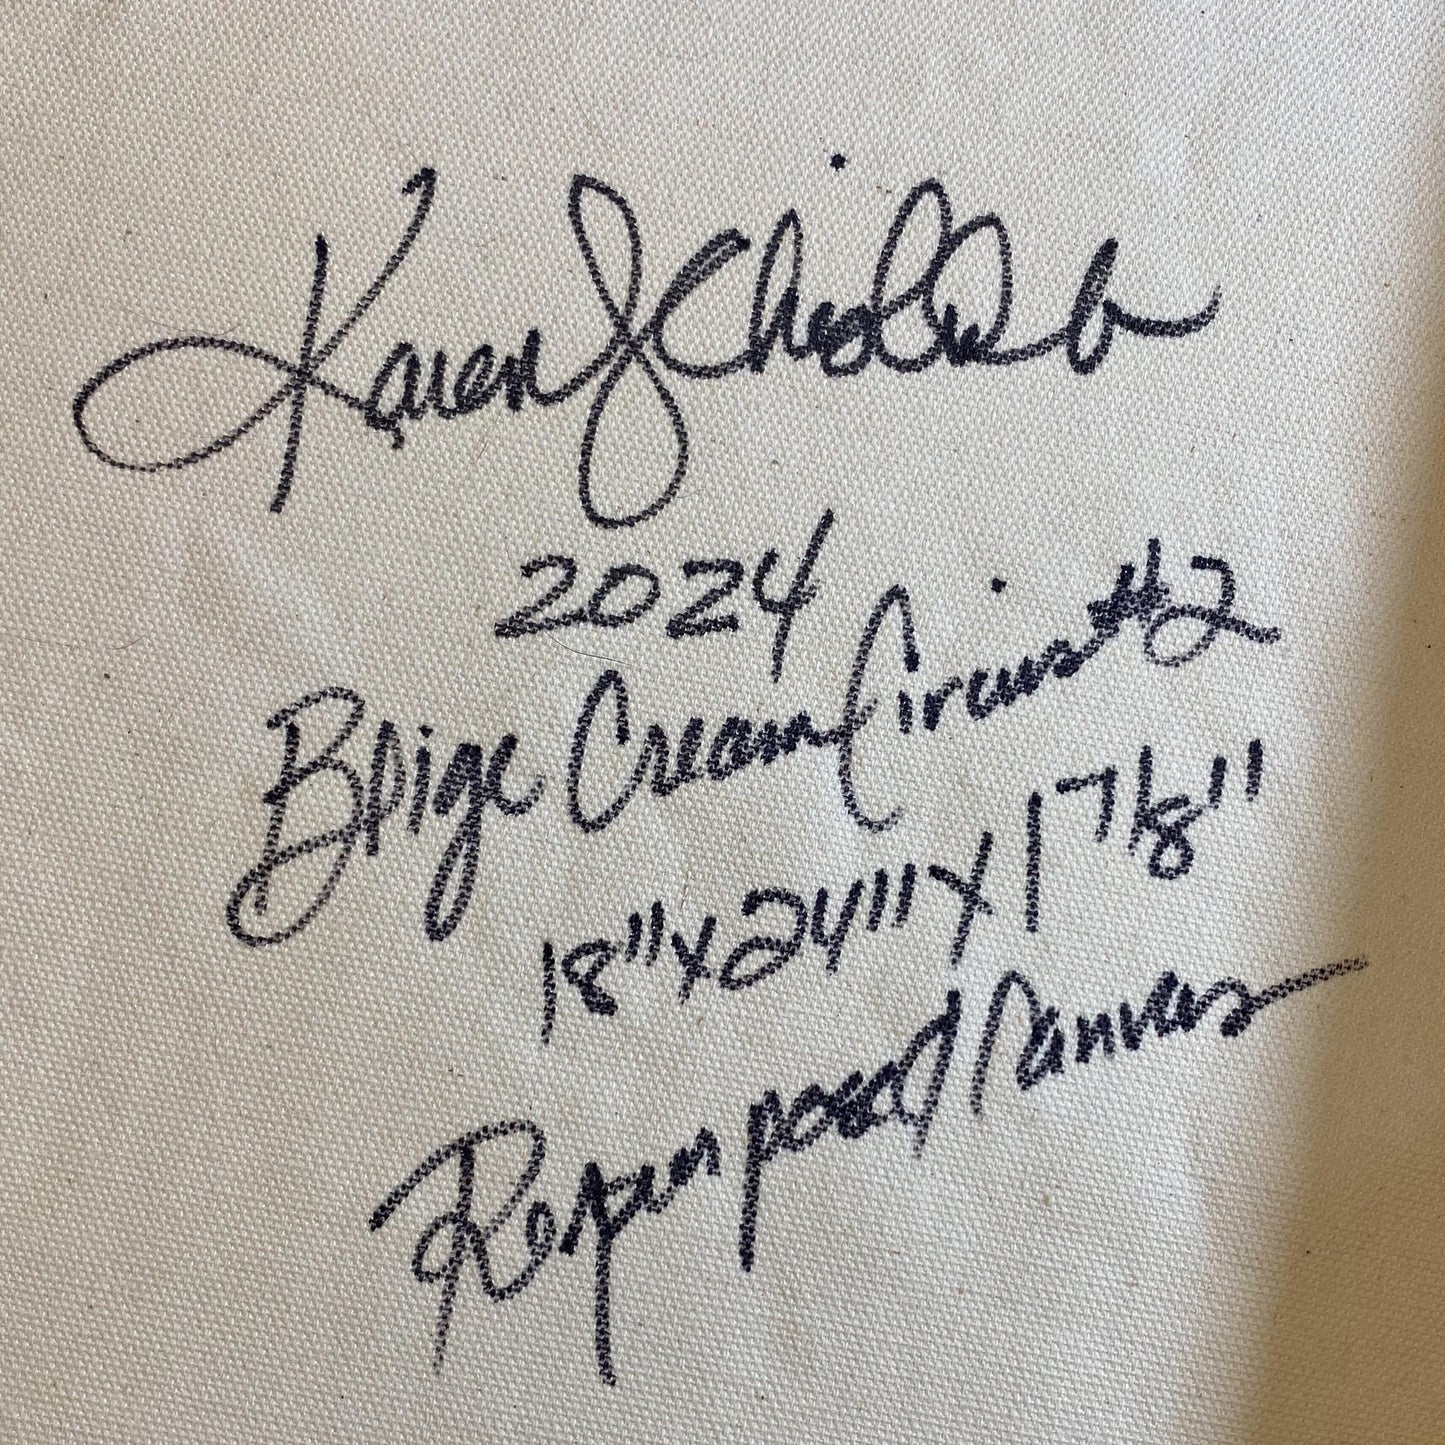 Karen J
2024
Beige Cream Circus #2
18"x24"x1 7/8"
Repurposed Canvas